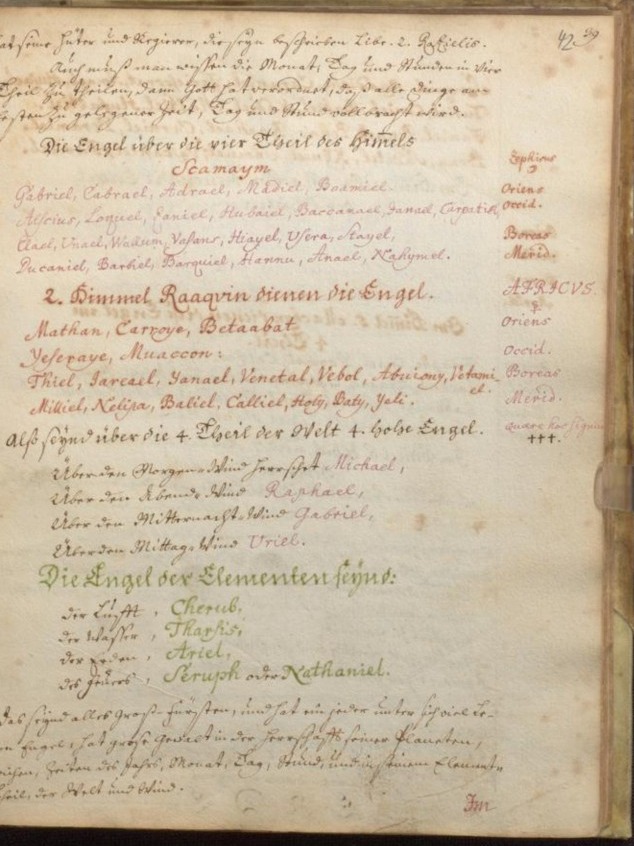 42 39
hat seine Hüter und Regierer, die seyn beschrieben Libr. 2. Razielis.
Auch muß man wissen die Monat, Tag und Stunden in vier
Theil zu theilen, dann Gott hat verordnet, daß alle dinge am
besten zu gelegener Zeit, Tag und Stund vollbracht wird.
Die Engel über die vier Theil des Him̄els
Scamaym
Zephirus
Gabriel, Cabrael, Adrael, Madiel, Boamiel. Oriens
Alscius, Loquel, Zaniel, Hubaiel, Baccanael, Janael, Carpatiel, Occid.
Elael, Unael, Wallum, Vasans, Hiayel, Usera, Stayel, Boreas
Ducaniel, Barbiel, Barquiel, Hannu, Anael, Nahymel. Merid.
2. Himmel Raaqvin dienen die Engel. AFRICVS
Mathan, Carvoye, Betaabat Oriens
Yeseraye, Muaccon: Occid.
Thiel, Jareael, Yanael, Venetal, Vebol, Abuiony, Vetami-el. Boreas
Milliel, Nelipa, Baliel, Calliel, Holy, Baty, Yeli. Merid.
Alß seynd über die 4. Theil der Welt 4. hohe Engel. quare hoc signum
+++.
Über den Morgen-Wind herrschet Michael,
Über den Abend-Wind Raphael,
Über den Mitternacht-Wind Gabriel,
Über den Mittag-Wind Uriel.
Die Engel der Elementen seynd:
der Lufft, Cherub,
der Wasser, Tharsis,
der Erden, Ariel,
des Feuers, Seruph oder Nathaniel.
Das seynd alles Groß-Fürsten, und hat ein jeder unter sich viel Le-
Engel, hat große Gewalt in der Herrschafft seiner Planeten,
Zeichen, Zeiten des Jahrs, Monat, Tag, Stund, und in seinem Element,
Theil, der Welt und Wind.
Im